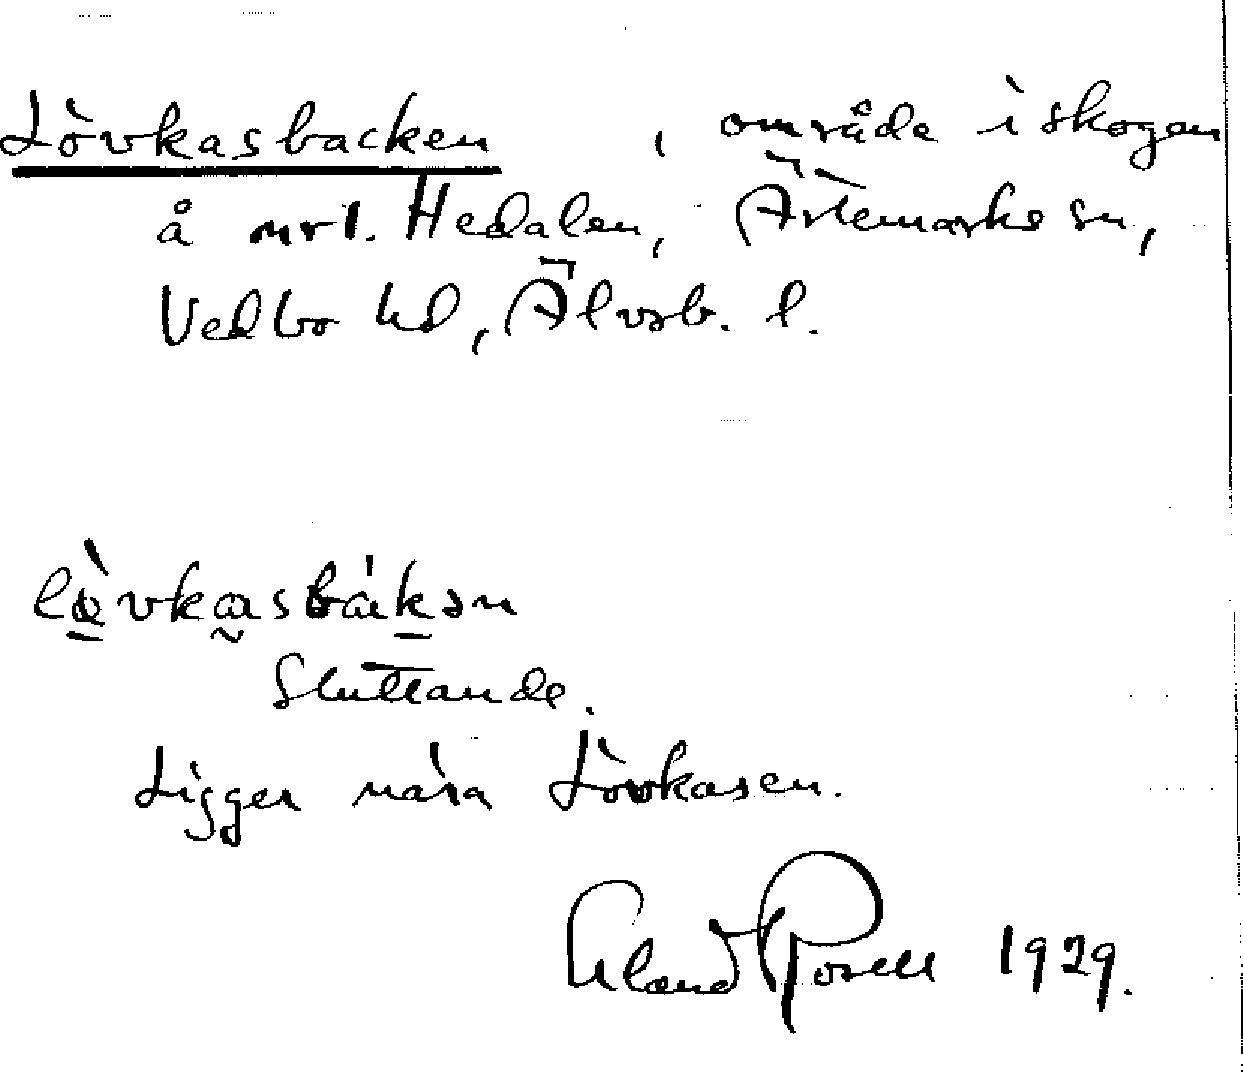 Lövkasbacken , område i skogen
å mrl. Hedalen, Ärtemarks sn,
Vedbo hd, Älvsb. l.
Sluttande.
Ligger nära Lövkasen.
Erland Rosell 1929.